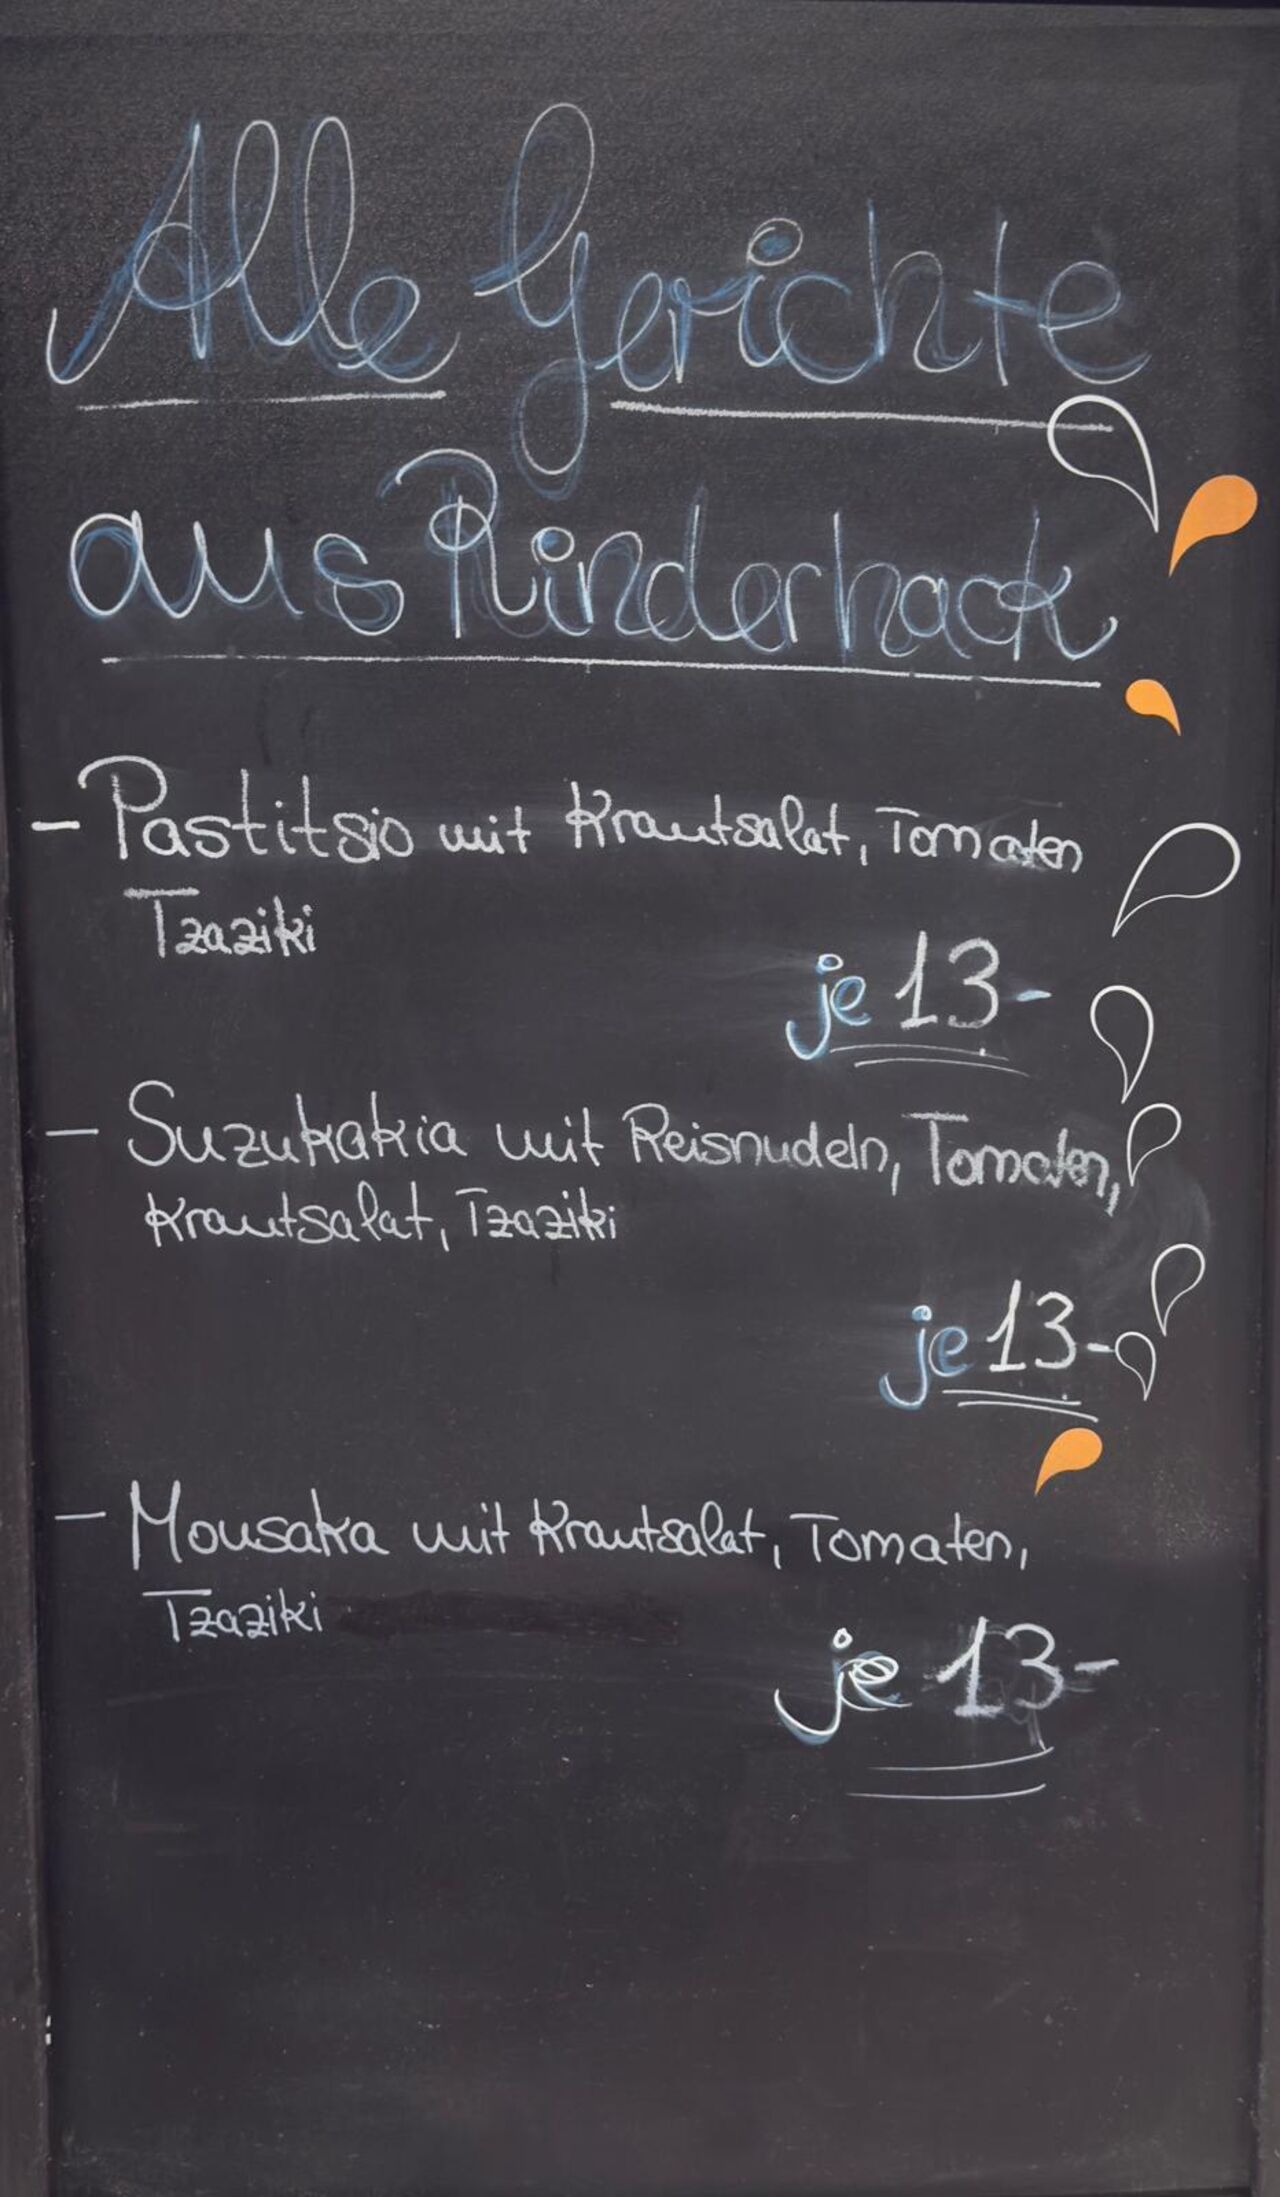 Alle Gerichte
aus Rinderhack
- Pastitsio mit Krautsalat, Tomaten
Tzaziki
je 13-
- Suzukakia mit Reisnudeln, Tomaten,
Krautsalat, Tzaziki
je 13-
- Mousaka mit Krautsalat, Tomaten,
Tzaziki
je 13-